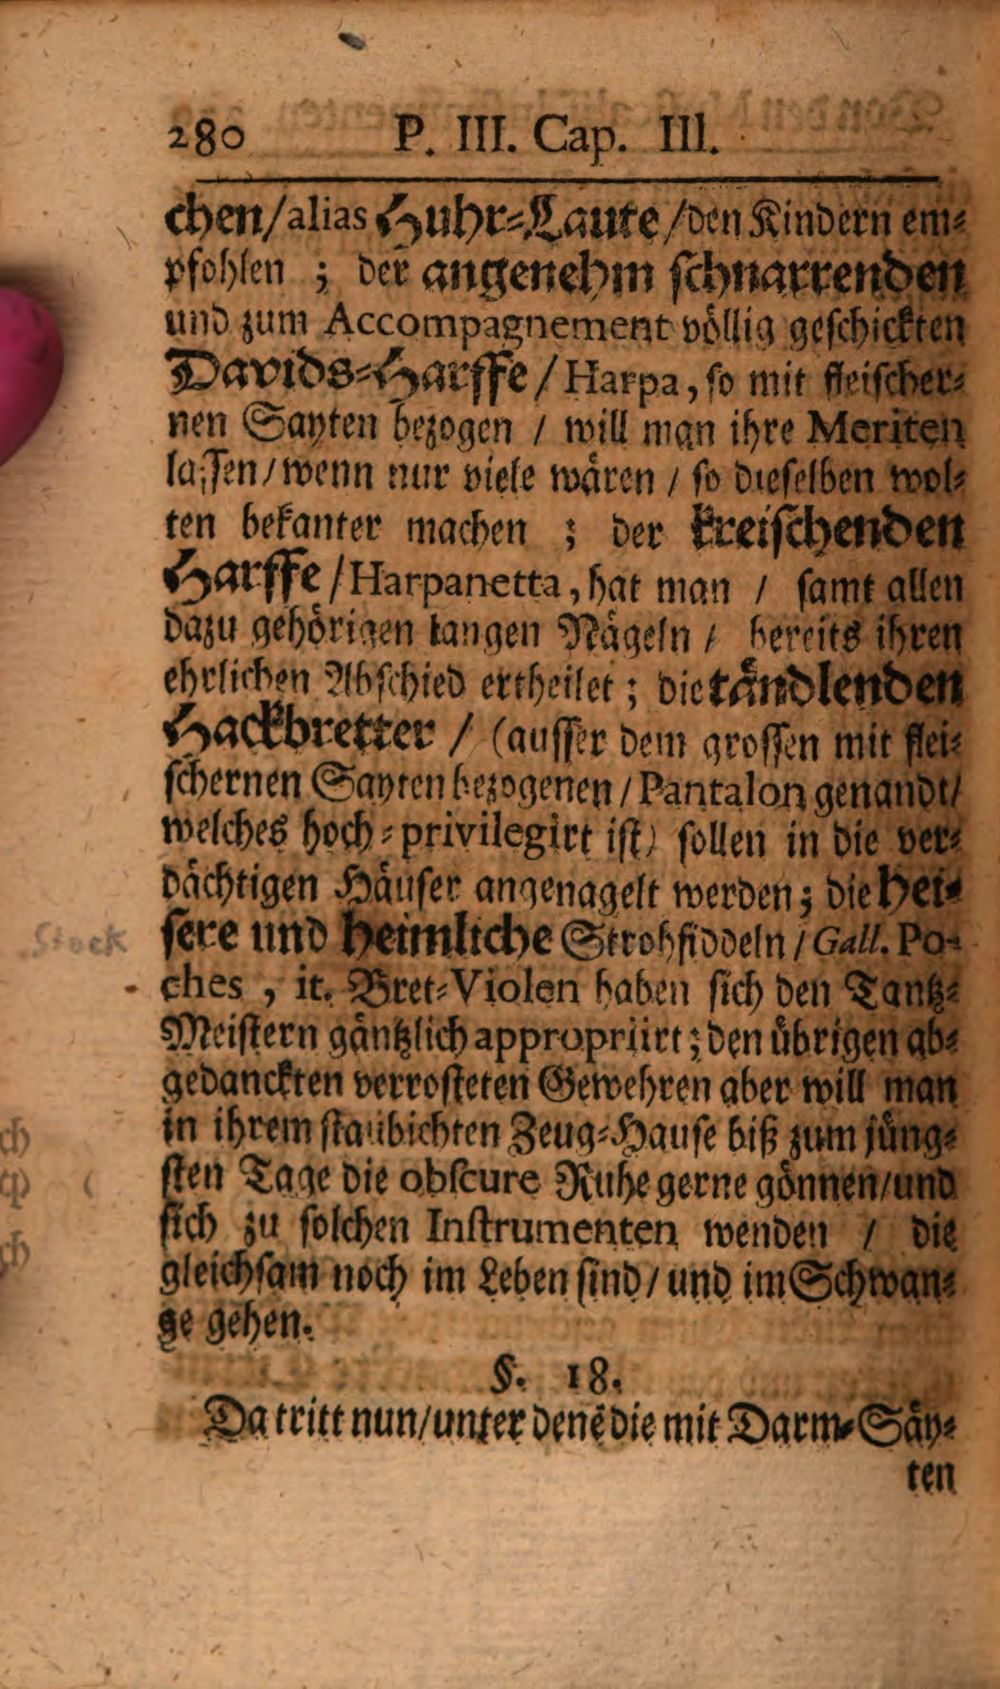 280 P. III. Cap. III.
chen/alias Huhr-Laute/den Kindern em-
pfohlen ; der angenehm schnarrenden
und zum Accompagnement völlig geschickten
Davids-Harffe/Harpa, so mit fleischer-
nen Sayten bezogen / will man ihre Meriten
lassen/wenn nur viele wären / so dieselben wol-
ten bekanter machen ; der kreischenden
Harffe/Harpanetta, hat man / samt allen
dazu gehörigen langen Nägeln / bereits ihren
ehrlichen Abschied ertheilet ; die tändlenden
Hackbretter / (ausser dem grossen mit flei-
schernen Sayten bezogenen/Pantalon genandt/
welches hoch-privilegirt ist) sollen in die ver-
dächtigen Häuser angenagelt werden ; die hei-
Stock
sere und heimliche Strohfiddeln/Gall. Po-
ches , it. Bret-Violen haben sich den Tantz-
Meistern gäntzlich appropriirt ; den übrigen ab-
gedanckten verrosteten Gewehren aber will man
in ihrem staubichten Zeug-Hause biß zum jüng-
sten Tage die obscure Ruhe gerne gönnen/und
sich zu solchen Instrumenten wenden / die
gleichsam noch im Leben sind/ und im Schwan-
ge gehen.
§. 18.
Da tritt nun/unter denē die mit Darm-Säy-
ten